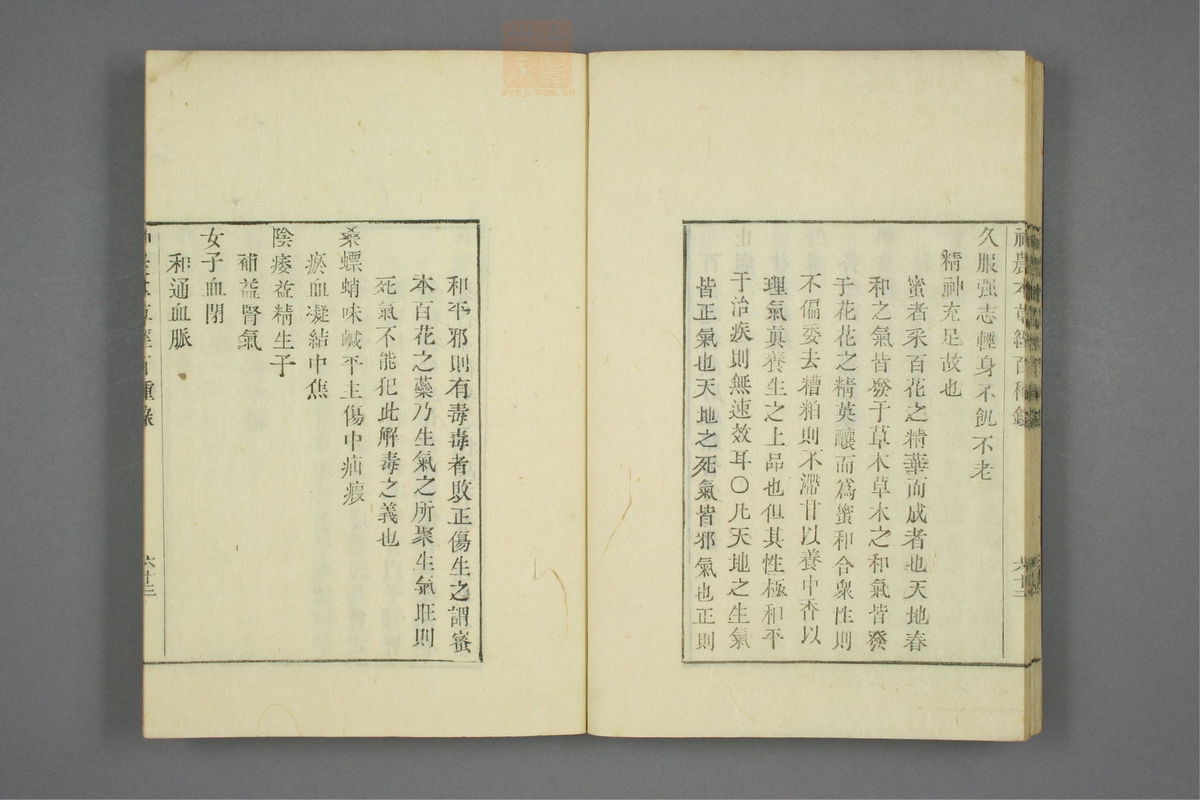 神農本草經百種錄
六十三
久服强志輕身不飢不老
精神充足故也
蜜者采百花之精華而成者也天地春
和之氣皆發于草木草木之和氣皆發
于花花之精英釀而爲蜜和合衆性則
不偏委去糟粕則不滯甘以養中香以
理氣眞養生之上品也但其性極和平
于治疾則無速效耳〇凡天地之生氣
皆正氣也天地之死氣皆邪氣也正則
和平邪則有毒毒者敗正傷生之謂蜜
本百花之蘂乃生氣之所聚生氣旺則
死氣不能犯此解毒之義也
桑螵蛸味鹹平主傷中疝瘕
瘀血凝結中焦
陰痿益精生子
補益腎氣
女子血閉
和通血脈
zysj.com.cn